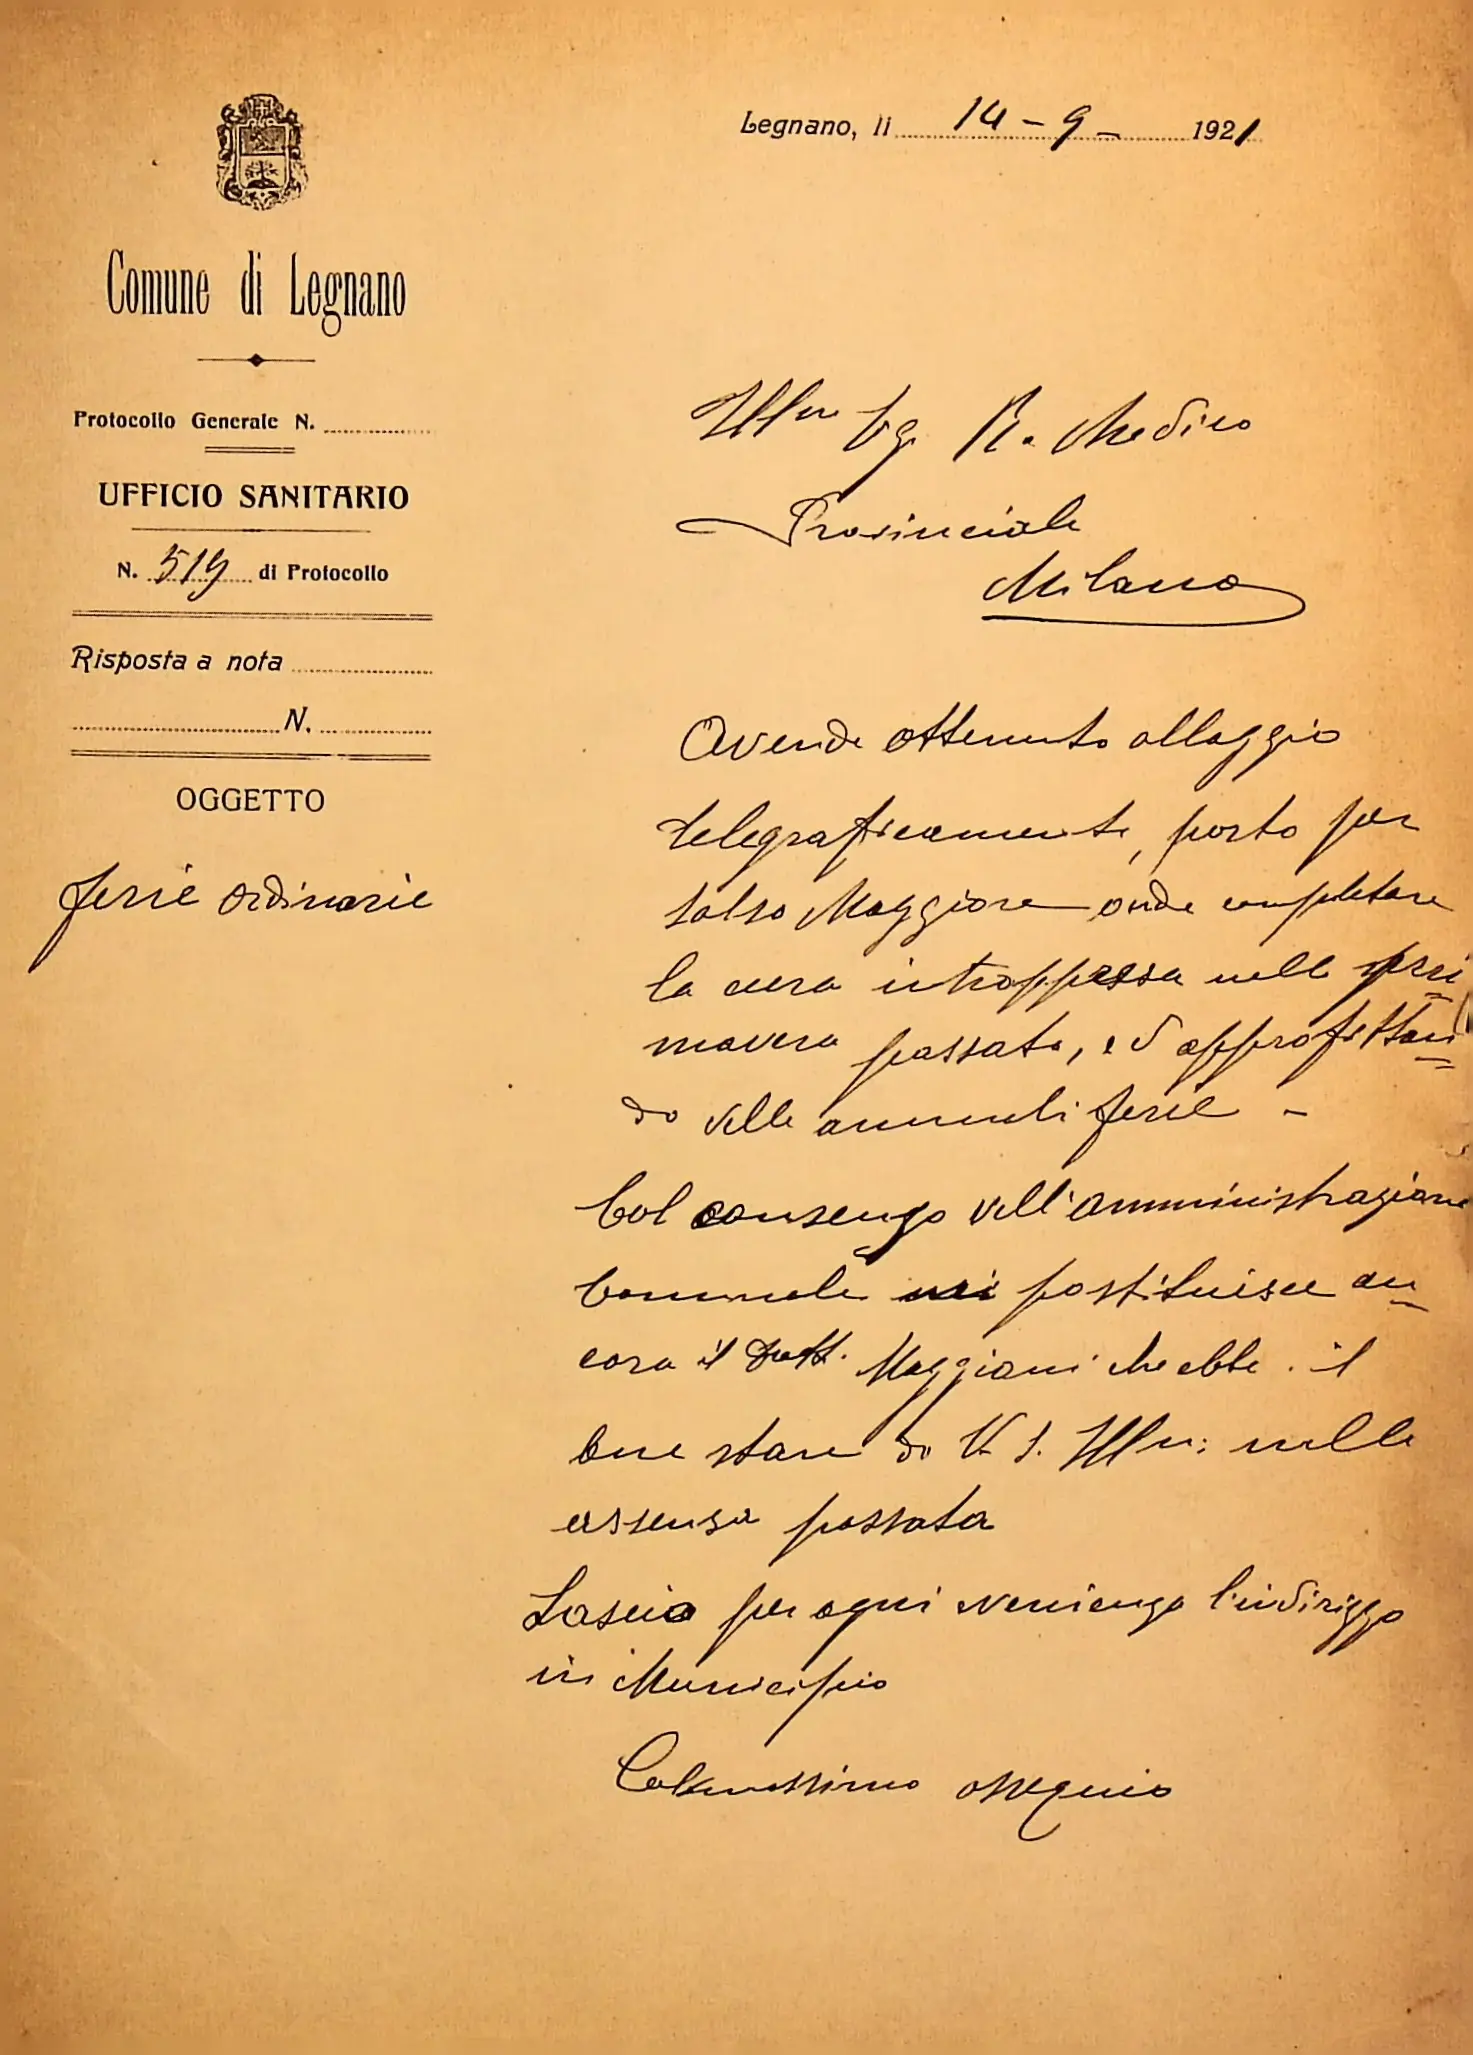 Legnano, li 14 - 9 - 1921
Comune di Legnano
Protocollo Generale N.
UFFICIO SANITARIO
N. 519 di Protocollo
Risposta a nota
N.
OGGETTO
ferie ordinarie
Ill.mo Sg. R. Medico
Provinciale
Milano
Avendo ottenuto alloggio
telegraficamente, parto per
Salso Maggiore onde completare
la cura intrappresa nella pri
mavera passata, ed approfittan
do delle annuali ferie -
Col consenso dell'amministrazione
Comunale mi sostituisce an
cora il Dott. Maggiani che ebbe il
bene stare da V. S. Ill.ma nella
assenza passata
Lascio per ogni evenienza l'indirizzo
in Municipio
ossequio